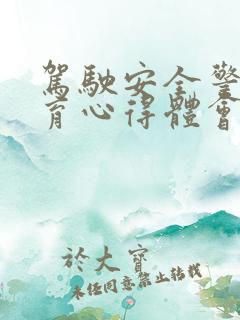 駕駛安全警
育心得體會
於大寶
未經同意禁止轉載